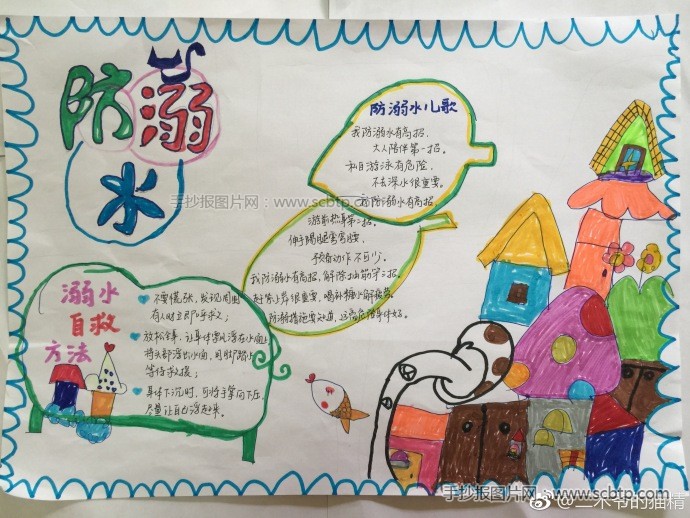 防溺
水
防溺水儿歌
我防溺水有高招,
大人陪伴第一招。
私自游泳有危险,
不去深水很重要。
我防溺水有高招,
游前热身第二招。
伸手踢腿弯弯腰,
预备动作不可少。
我防溺水有高招,解除抽筋第三招。
赶紧上岸很重要,喝补糖水解疲劳。
防溺措施要知道,
溺水
自救
方法
不要慌张,发现周围
有人时立即呼救;
放松全身,让身体飘浮在水面上,
将头部浮出水面,用脚踢水,
等待救援;
身体下沉时,可将手掌向下压,
尽量让自己浮起来。
手抄报图片网:www.scbtp.com
手抄报图片网:www.scbtp.com
@二木爷的猫精